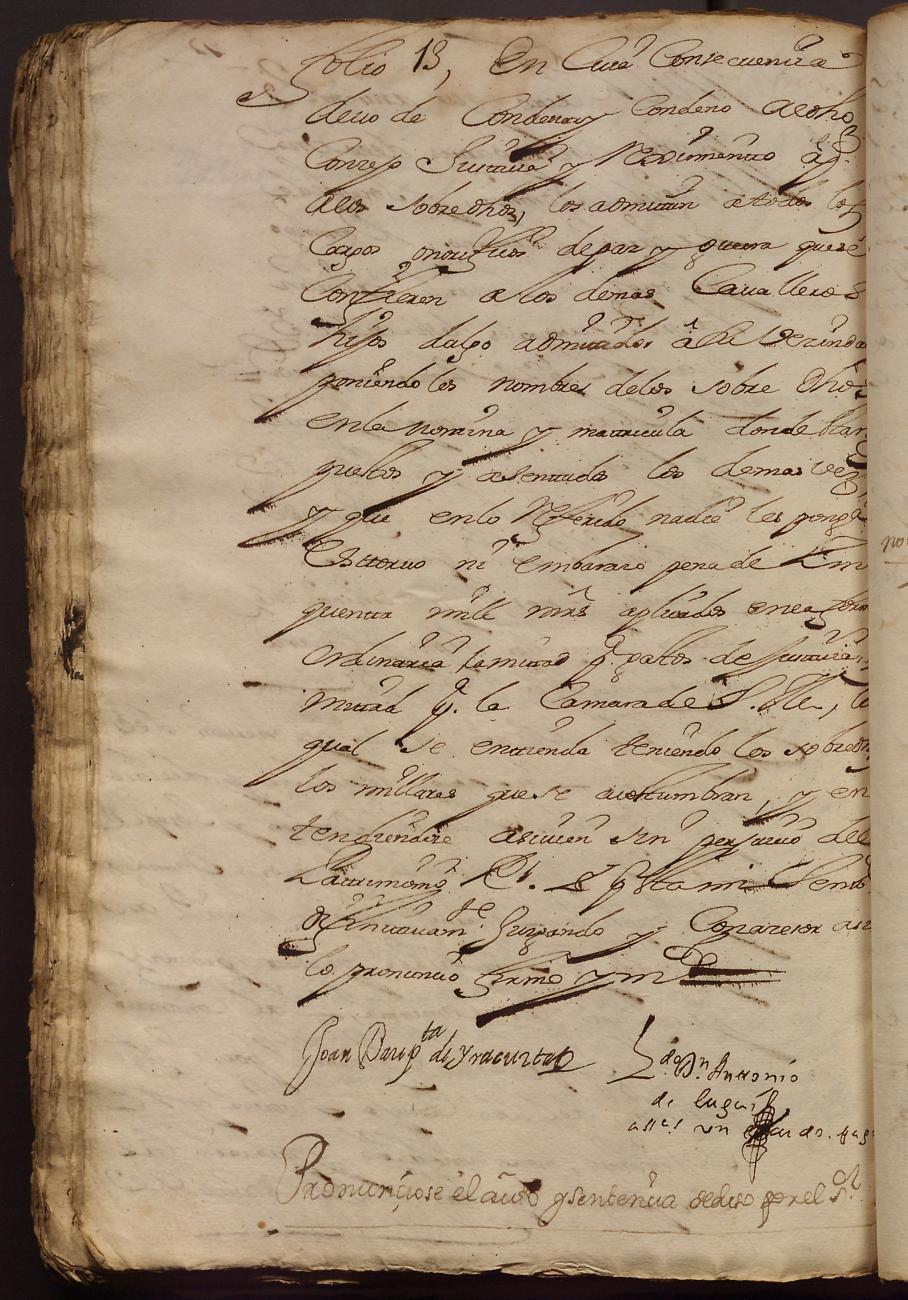 folio 13, En Cuia Consecuencia
devo de Condenar y Condeno al dho
Conzejo Justicia y Reximiento a q.
a los sobre dhos, los admitan a todos los
Cargos onorificos de paz y guerra que se
Confieren a los demas Cavalleros
hijos dalgo admitidos a la Vezindad
poniendo los nombres de los sobre dhos
en la nomina y matricula donde estan
puestos y asentados los demas vez
y que en lo Referido nadie les ponga
Esttorvo ni embarazo pena de Zin
quenta mill mrs aplicados en la forma
ordinaria la mitad p. gastos de Justicia,
mitad p. la Camara de S. Mg, lo
qual se entienda teniendo los sobre dh
los millares que se acostumbran, y en
tendiendose asi vien sin perjuicio del
Patrimonio Rl. Y por esta mi Senten
difinitivamte Juzgando y Con asesor asi
lo pronuncio firmo y m
Joan Bauptta de Yracurta
Ldo Dn. Antonio
de
Pronunciose el auto y sentencia de suso por el Sr.